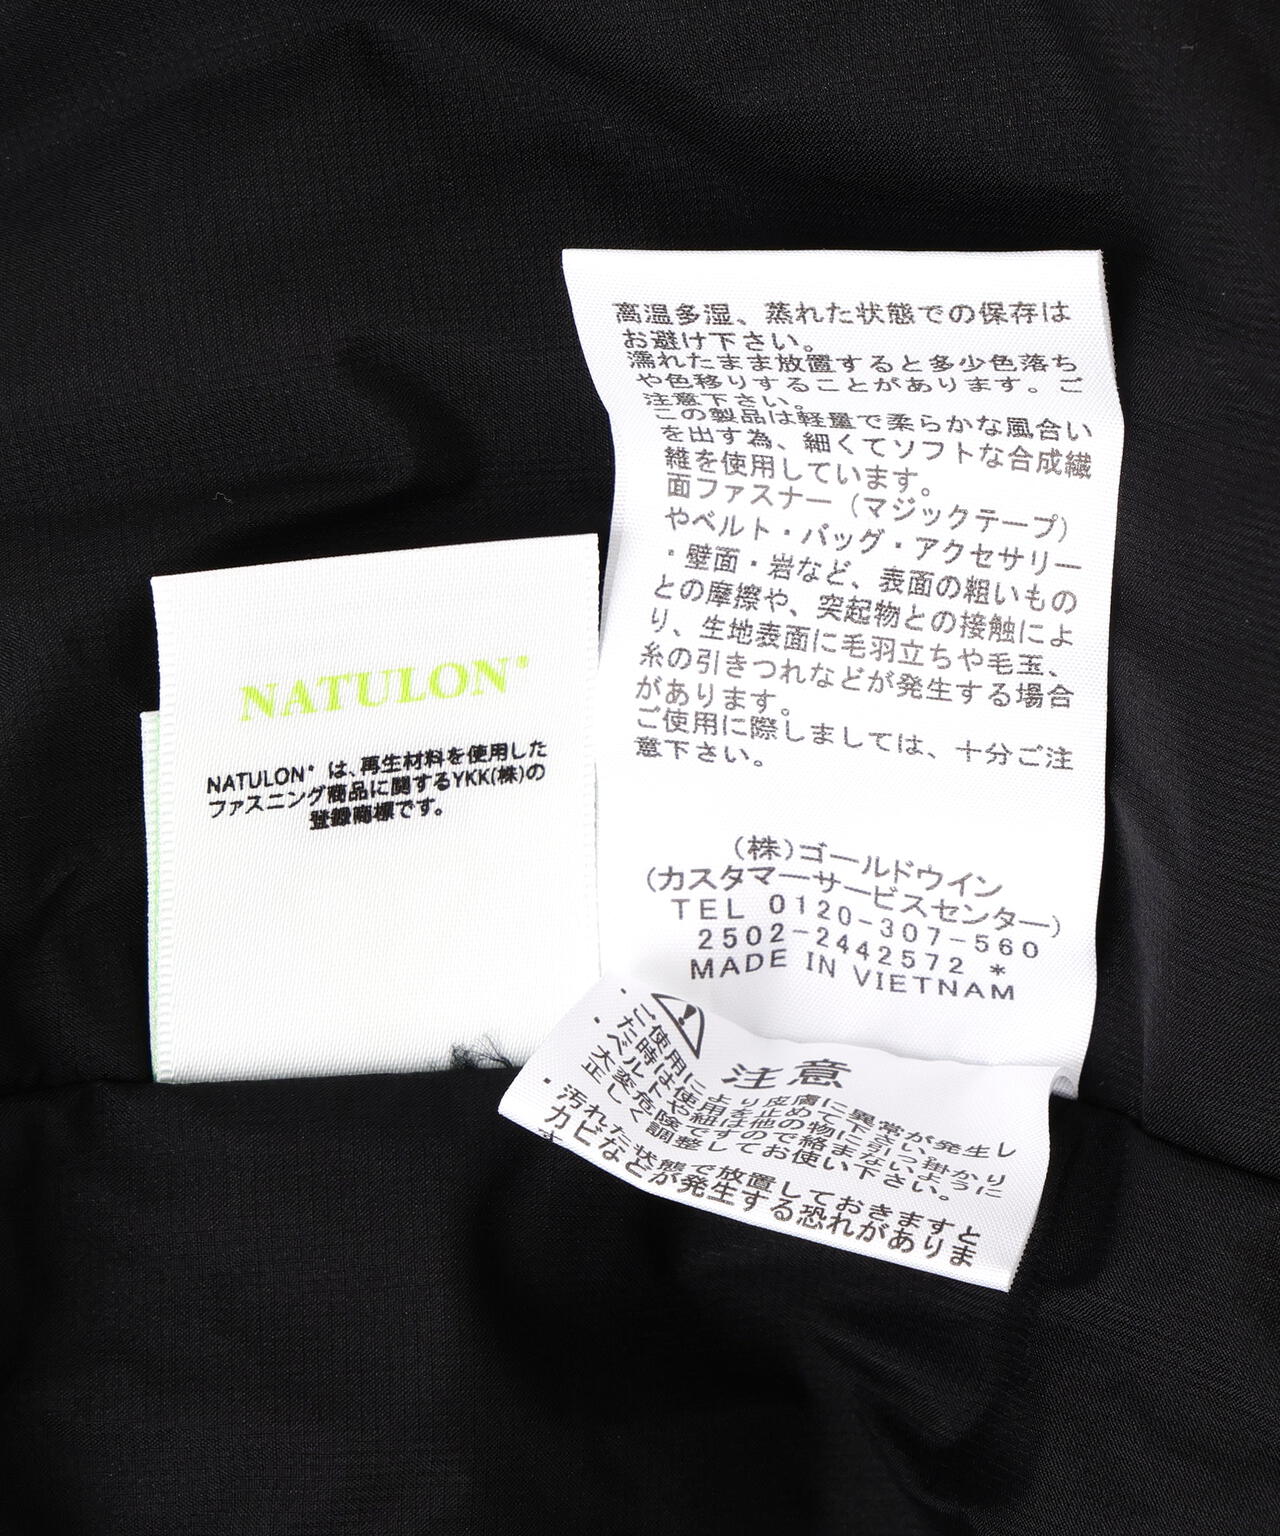 高温多湿、蒸れた状態での保存は
お避け下さい。
濡れたまま放置すると多少色落ち
や色移りすることがあります。ご
注意下さい。
この製品は軽量で柔らかな風合い
を出す為、細くてソフトな合成繊
維を使用しています。
面ファスナー(マジックテープ)
やベルト・バッグ・アクセサリー
・壁面・岩など、表面の粗いもの
との摩擦や、突起物との接触によ
り、生地表面に毛羽立ちや毛玉、
糸の引きつれなどが発生する場合
があります。
ご使用に際しましては、十分ご注
意下さい。
(株)ゴールドウイン
(カスタマーサービスセンター)
TEL 0120-307-560
2502-2442572 *
MADE IN VIETNAM
NATULON®
NATULON® は、再生材料を使用した
ファスニング商品に関するYKK(株)の
登録商標です。
注意
・ご使用により皮膚に異常が発生し
た時は使用を止めて下さい。
・ベルトや紐は他の物に引っ掛かり
大変危険ですので絡まないように
正しく調整してお使い下さい。
・汚れた状態で放置しておきますと
カビなどが発生する恐れがありま
す